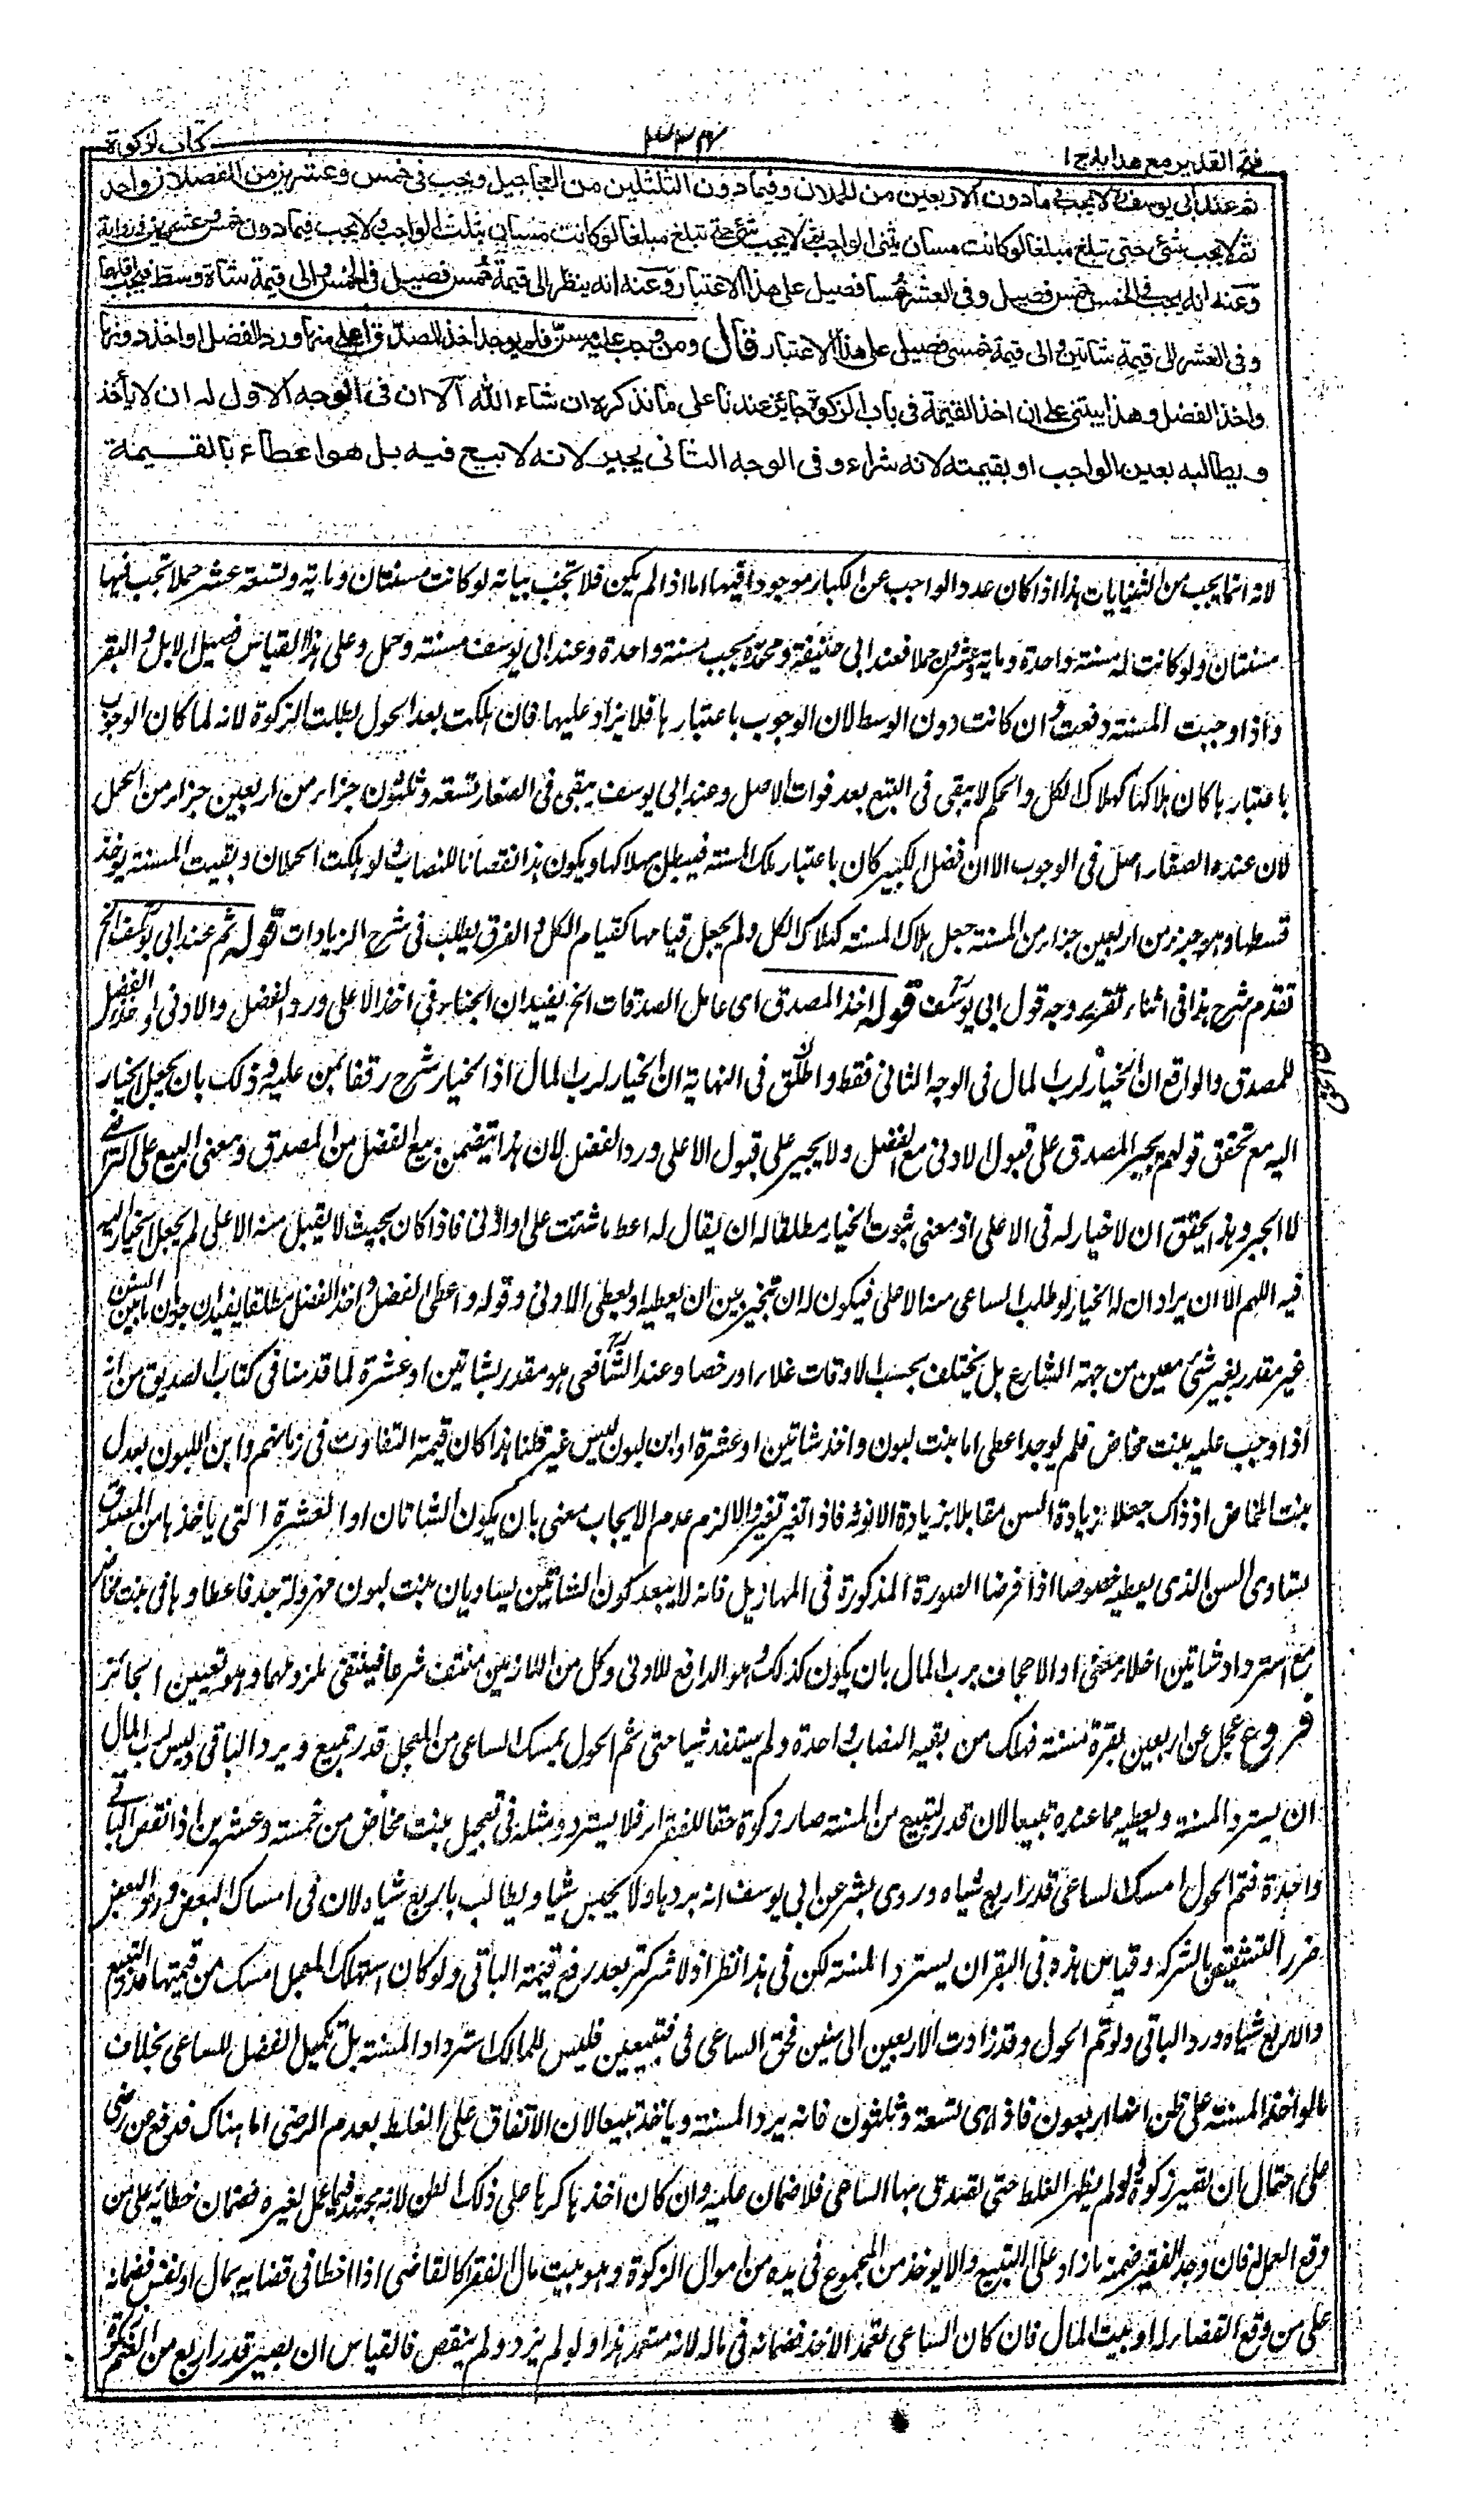 فتح القدير مع هدايه ج ١
كتاب الزكوة
ثم عند ابى يوسف رح لا يجب فى ما دون الاربعين من الحملان وفيما دون الثلثين من العجاجيل ويجب فى خمس وعشرين من الفصلان واحد
ثم لا يجب شئ حتى تبلغ مبلغا لو كانت مسان يثنى الواجب ثم لا يجب شئ حتى تبلغ مبلغا لو كانت مسان يثلث الواجب ولا يجب فيما دون خمس وعشرين فى رواية
وعنه انه يجب فى الخمس خمس فصيل وفى العشر خمسا فصيل على هذا الاعتبار وعنه انه ينظر الى قيمة خمس فصيل فى الخمس والى قيمة شاة وسط فيجب اقلهما
وفى العشر الى قيمة شاتين والى قيمة خمسى فصيل على هذا الاعتبار قال ومن وجب عليه مسن فلم يوجد اخذ المصدق اعلى منها ورد الفضل او اخذ دونها
واخذ الفضل وهذا يبتنى على ان اخذ القيمة فى باب الزكوة جائز عندنا على ما نذكره ان شاء الله الا ان فى الوجه الاول له ان لا يأخذ
ويطالبه بعين الواجب او بقيمته لانه شراء وفى الوجه الثانى يجبر لانه لا بيع فيه بل هو اعطاء بالقيمة
لانه انما يجب من الثنايات هذا اذا كان عدد الواجب من الكبار موجودا فيها اما اذا لم يكن فلا تجب بيانه لو كانت مسنتان ومائة وتسعة عشر حملا تجب فيها
مسنتان ولو كانت له مسنة واحدة ومائة وعشرون حملا فعند ابى حنيفة ومحمد رح يجب مسنة واحدة وعند ابى يوسف مسنة وحمل وعلى هذا القياس فصيل الابل والبقر
واذا وجبت المسنة دفعت وان كانت دون الوسط لان الوجوب باعتبارها فلا يزاد عليها فان هلكت بعد الحول بطلت الزكوة لانه لما كان الوجوب
باعتبارها كان هلاكها كهلاك الكل والحكم لا يبقى فى التبع بعد فوات الاصل وعند ابى يوسف يبقى فى الصغار تسعة وثلثون جزاء من اربعين جزاء من الحمل
لان عنده الصغار اصل فى الوجوب الا ان فضل الكبير كان باعتبار تلك المسنة فيبطل بهلاكها ويكون هذا نقصانا للنصاب ولو هلكت الحملان وبقيت المسنة يوخذ
قسطها وهو جزء من اربعين جزاء من المسنة جعل هلاك المسنة كهلاك الكل ولم يجعل قيامها كقيام الكل والفرق يطلب فى شرح الزيادات قوله ثم عند ابى يوسف الخ
تقدم شرح هذا فى اثناء تقرير وجه قول ابى يوسف قوله اخذ المصدق اى عامل الصدقات الخ يفيد ان الخيار فى اخذ الاعلى ورد الفضل والادنى واخذ الفضل
للمصدق والواقع ان الخيار لرب المال فى الوجه الثانى فقط واطلق فى النهاية ان الخيار لرب المال اذ الخيار شرع رفقا بمن عليه وذلك بان يجعل الخيار
اليه مع تحقق قولهم يجبر المصدق على قبول الادنى مع الفضل ولا يجبر على قبول الاعلى ورد الفضل لان هذا يتضمن بيع الفضل من المصدق ومعنى البيع على التراضى
لا الجبر وهذا يحقق ان لا خيار له فى الاعلى اذ معنى ثبوت الخيار مطلقا له ان يقال له اعط ما شئت اعلى او ادنى فاذا كان بحيث لا يقبل منه الاعلى لم يجعل الخيار اليه
فيه اللهم الا ان يراد ان له الخيار لو طلب الساعى منه الاعلى فيكون له ان يتخير بين ان يعطيه او يعطى الادنى وقوله واعطى الفضل واخذ الفضل مطلقا يفيد ان جبران ما بين السنين
غير مقدر بغير شئ معين من جهة الشارع بل يختلف بحسب الاوقات غلاء او رخصا وعند الشافعى هو مقدر بشاتين او عشرة لما قدمنا فى كتاب الصديق من انه
اذا وجب عليه بنت مخاض فلم يوجد اعطى اما بنت لبون واخذ شاتين او عشرة او ابن لبون ليس غير قلنا هذا كان قيمة التفاوت فى زمانهم وابن اللبون يعدل
بنت المخاض اذ ذاك جعلا لزيادة السن مقابلا بزيادة الانوثة فاذا تغير تغير والا لزم عدم الايجاب معنى بان يكون الشاتان او العشرة التى ياخذها من المصدق
يساوى السن الذى يعطيه خصوصا اذا فرضنا الصورة المذكورة فى المهازيل فانه لا يبعد كون الشاتين يساويان بنت لبون مهزولة جدا فاعطاوها فى بنت مخاض
مع استرداد شاتين اخلاء معنى او الاجحاف برب المال بان يكون كذلك وهو الدافع للادنى وكل من اللازمين منتف شرعا فينتفى ملزومهما وهو تعيين الجائز
فروع عجل عن اربعين بقرة مسنة فهلك من بقية النصاب واحدة ولم يستفد شيا حتى تم الحول يمسك الساعى من المعجل قدر تبيع ويرد الباقى وليس لرب المال
ان يسترد المسنة ويعطيه مما عنده تبيعا لان قدر التبيع من المسنة صار زكوة حقا للفقراء فلا يسترد ومثله فى تعجيل بنت مخاض من خمسة وعشرين اذا نقص الباقى
واحدة فتم الحول امسك الساعى قدر اربع شياه وروى بشر عن ابى يوسف انه يردها ولا يحبس شيا ويطالب باربع شياه لان فى امساك البعض ورد البعض
ضرر التشقيص بالشركة وقياس هذه فى البقر ان يسترد المسنة لكن فى هذا نظر اذ لا شركة بعد دفع قيمة الباقى ولو كان استهلك المعجل امسك من قيمتها قدر التبيع
والاربع شياه ورد الباقى ولو تم الحول وقد زادت الاربعين الى ستين فحق الساعى فى تبيعين فليس للمالك استرداد المسنة بل تكميل الفضل للساعى بخلاف
ما لو اخذ المسنة على ظن انها اربعون فاذا هى تسعة وثلثون فانه يرد المسنة وياخذ تبيعا لان الاتفاق على الغلط يعدم الرضى اما هناك فدفع عن رضى
على احتمال ان تصير زكوة ولو لم يظهر الغلط حتى تصدق بها الساعى فلا ضمان عليه وان كان اخذها كرها على ذلك الظن لانه مجتهد فيما عمل لغيره فضمان خطائه على من
وقع العمل له فان وجد الفقير ضمنه ما زاد على التبيع والا يوخذ من المجموع فى يده من اموال الزكوة وهو بيت مال الفقراء كالقاضى اذا اخطا فى قضايه بمال او نفس فضمانه
على من وقع القضاء له او بيت المال فان كان الساعى تعمد الاخذ فضمانه فى ماله لانه متعمد هذا ولو لم يزد ولم ينقص فالقياس ان يصير قدر اربع من الغنم زكوة